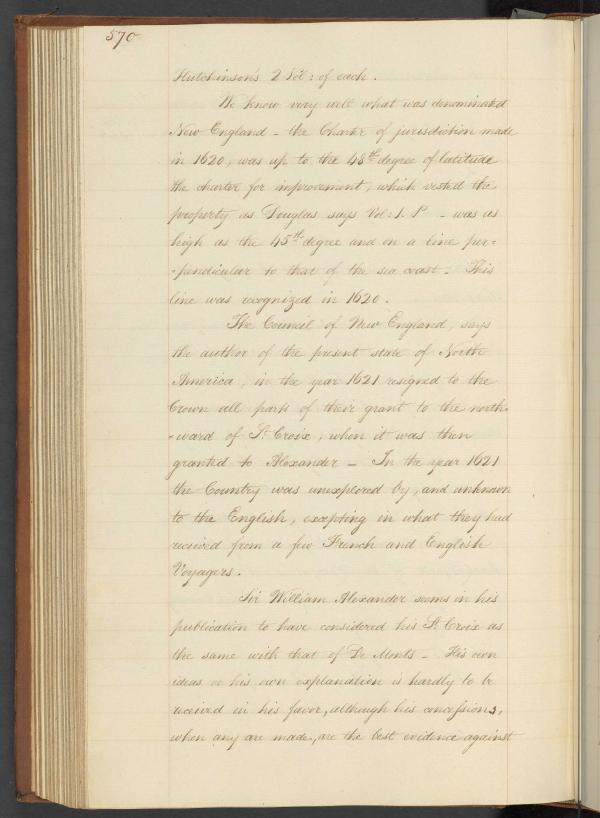 570
Hutchinson's 2 Vol: of each.
We know very well what was denominated
New England – the Charter of jurisdiction made
in 1620, was up to the 48th degree of latitude
the charter for improvement, which vested the
property as Douglas says Vol: 1. P – was as
high as the 45th degree and on a line per=
=pendicular to that of the sea coast. This
line was recognized in 1620.
The Council of New England, says
the author of the present state of North
America, in the year 1621 resigned to the
Crown all parts of their grant to the north=
=ward of St. Croix, when it was then
granted to Alexander – In the year 1621
the Country was unexplored by, and unknown
to the English, excepting in what they had
received from a few French and English
Voyagers.
Sir William Alexander seems in his
publication to have considered his St. Croix as
the same with that of De Monts – His own
ideas or his own explanation is hardly to be
received in his favor, although his concessions,
when any are made, are the best evidence against